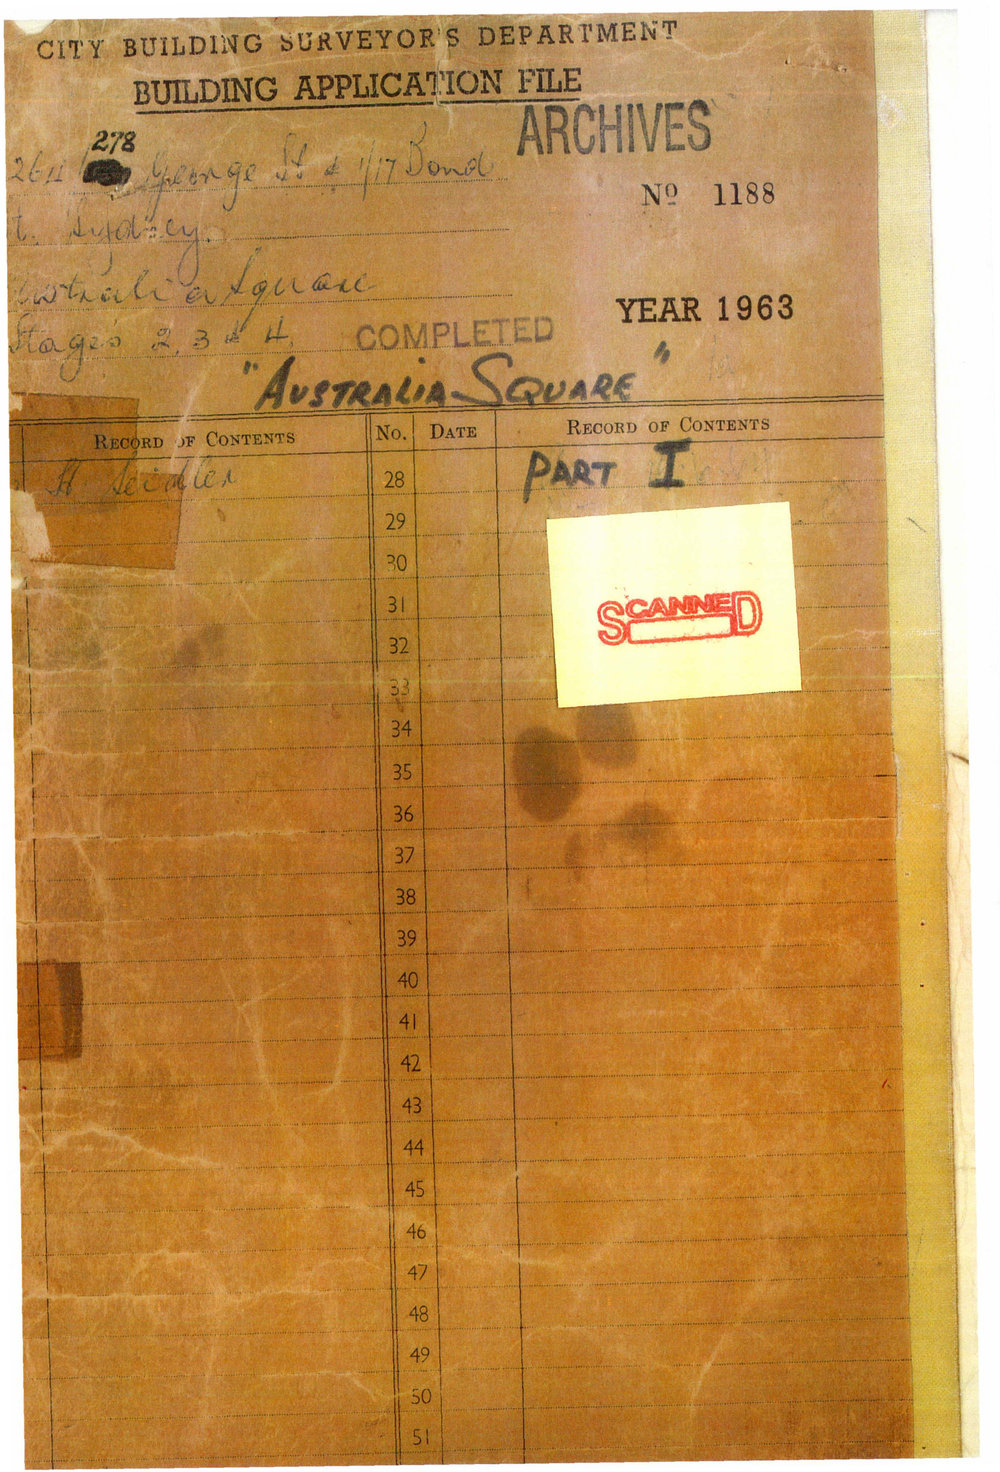 CITY BUILDING SURVEYOR'S DEPARTMENT
BUILDING APPLICATION FILE
ARCHIVES
278
264 George St & 1/17 Bond
t. Sydney.
Nº 1188
ustralia Square
YEAR 1963
Stages 2, 3 & 4
COMPLETED
"AUSTRALIA SQUARE"
RECORD OF CONTENTS No. DATE RECORD OF CONTENTS
H. Seidler 28 PART I
29
30
SCANNED
31
32
33
34
35
36
37
38
39
40
41
42
43
44
45
46
47
48
49
50
51